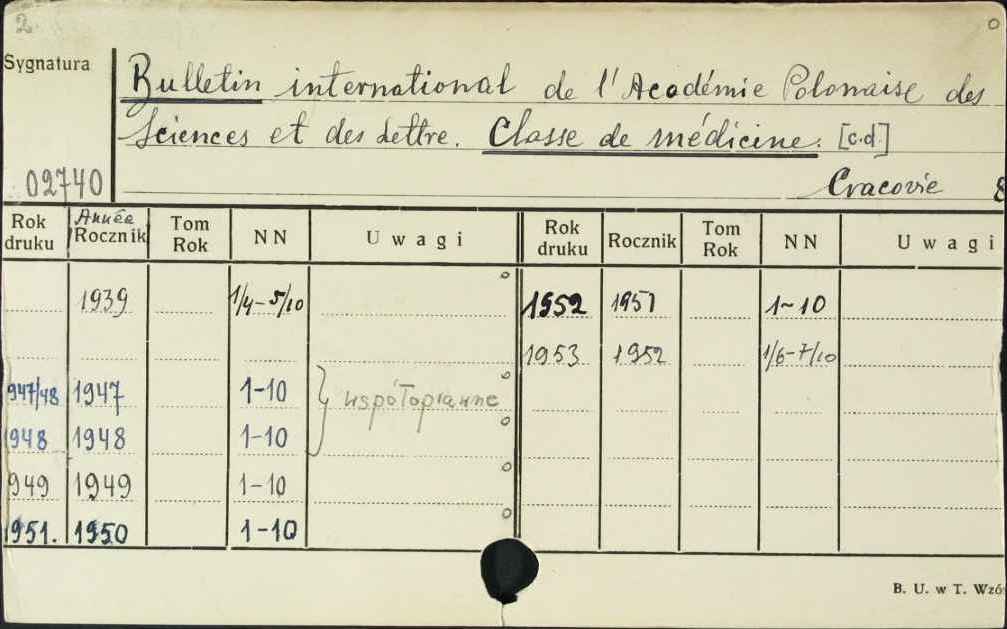 2.
Sygnatura
Bulletin international de l'Académie Polonaise des
Sciences et des Lettre. Classe de médicine. [c.d.]
02740
Cracovie 8
Rok druku Année Rocznik Tom Rok NN Uwagi Rok druku Rocznik Tom Rok NN Uwagi
1939 1/4-5/10 1952 1951 1-10
1953 1952 1/6-7/10
947/48 1947 1-10 współoprawne
948 1948 1-10
949 1949 1-10
1951. 1950 1-10
B. U. w T. Wzó